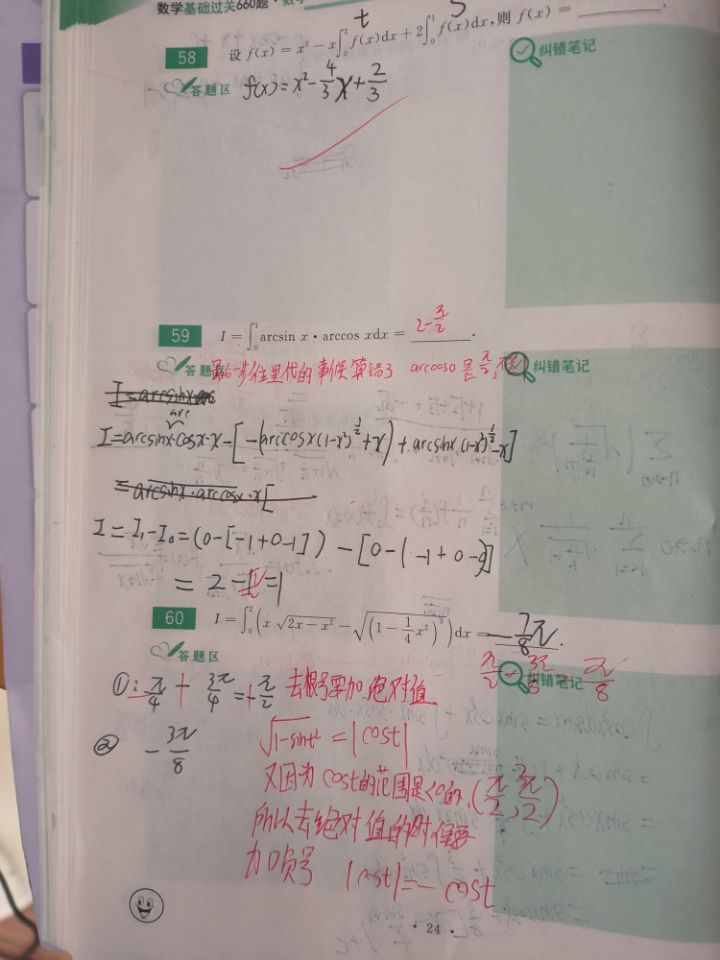 数学基础过关660题·数
t s
58 设 f(x) = x² − x∫₀² f(x)dx + 2∫₀¹ f(x)dx, 则 f(x) = ________.
纠错笔记
答题区 f(x) = x² − 4/3 x + 2/3
59 I = ∫₀¹ arcsin x · arccos xdx = 2 − π/2 .
答题区 步往里代的事候算错了 arccos0 是 π/2,
纠错笔记
I = arcsinx·arccosx·x − [−(arccosx(1−x²)^½ + x) + arcsinx(1−x²)^½ − x]
I = I₁ − I₀ = (0 − [−1 + 0 − 1]) − [0 − (−1 + 0 − 0)]
= 2
60 I = ∫₀² (x √(2x − x²) − √((1 − 1/4 x²)³))dx = − 7/8 π .
答题区
π/2 − 3π/8 π/8
纠错笔记
①: π/4 + 3π/4 = π/2 去根号要加绝对值
② − 3π/8 √(1−sint²) = |cost|
又因为 cost的范围是<0的, (π/2, 3π/2)
所以去绝对值的时候要
加负号 |cost| = − cost
· 24 ·